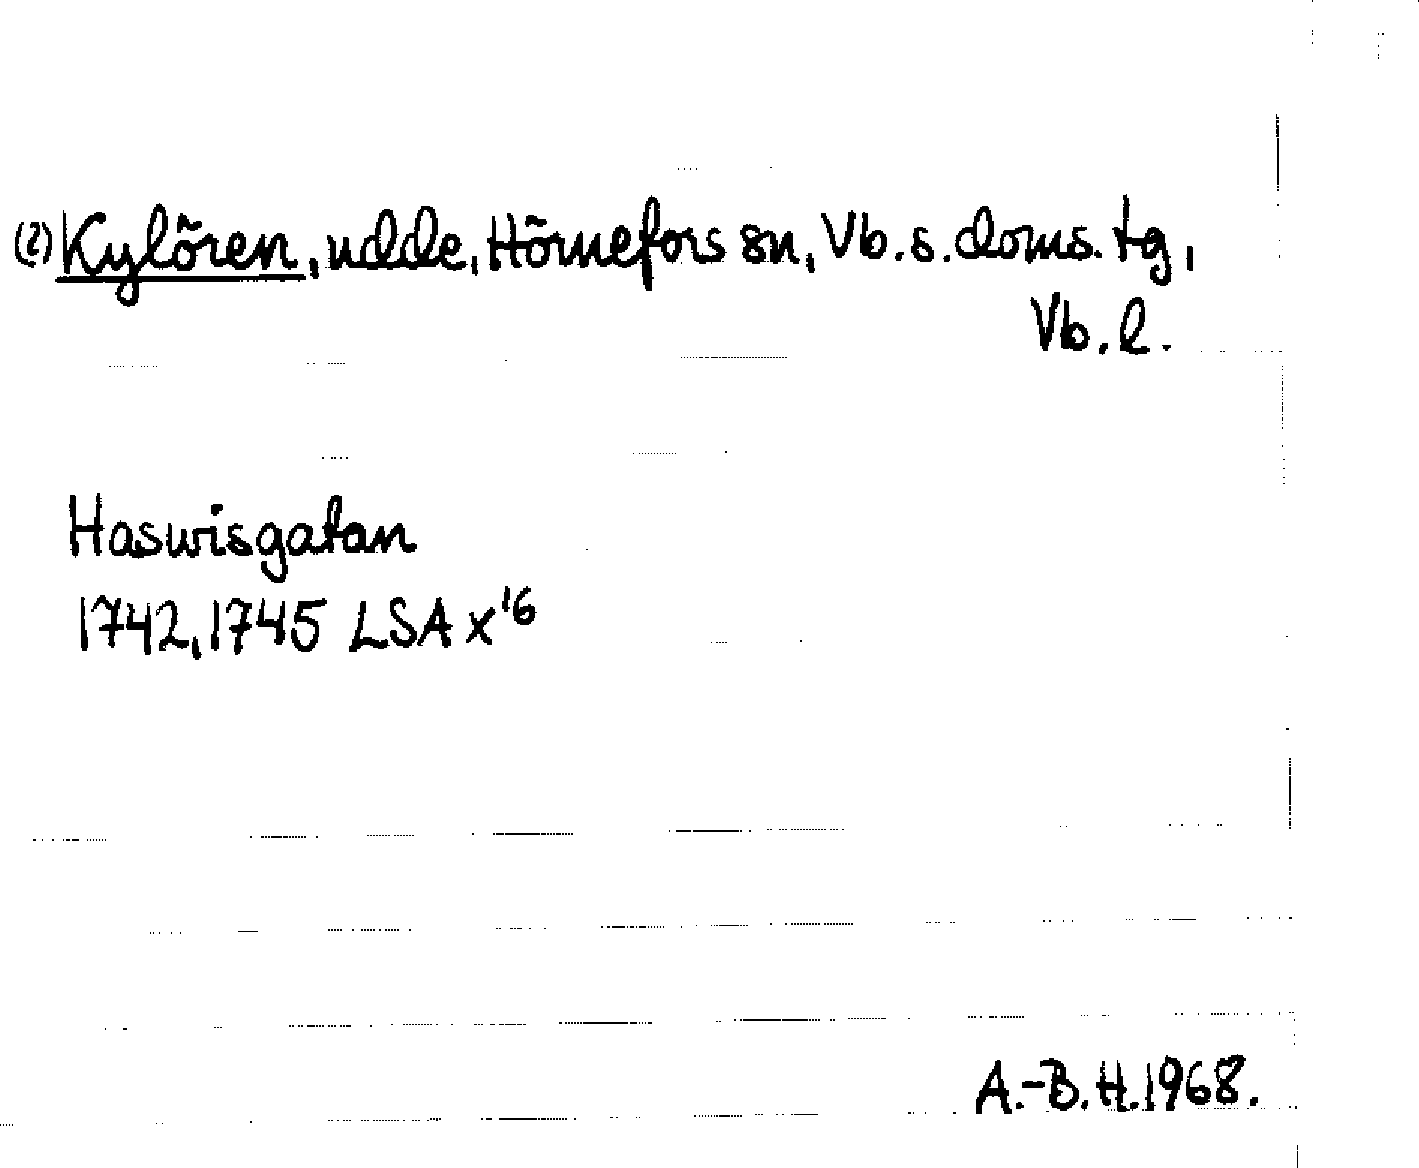 (2) Kylören, udde, Hörnefors sn, Vb. s. doms. tg,
Vb. l.
Haswisgatan
1742, 1745 LSA x'16
A.-B. H. 1968.